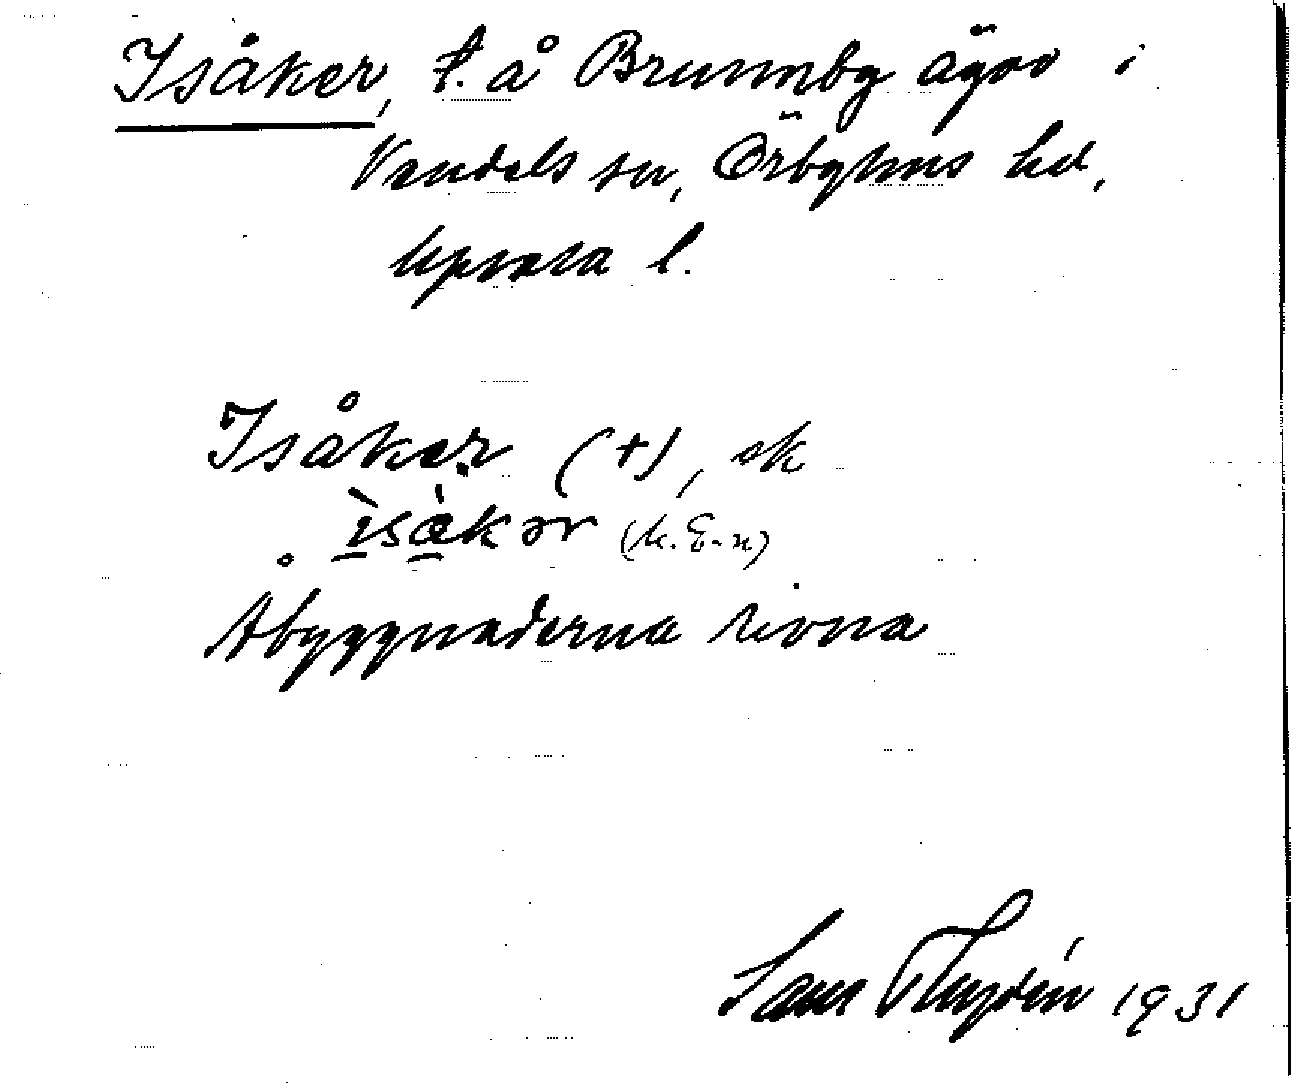 Isåker, t. å Brunnby ägor i
Vendels sn, Örbyhus hd.
Uppsala l.
Isåker (+), sk
ìsàkər (k. E-n)
Åbyggnaderna rivna
1931